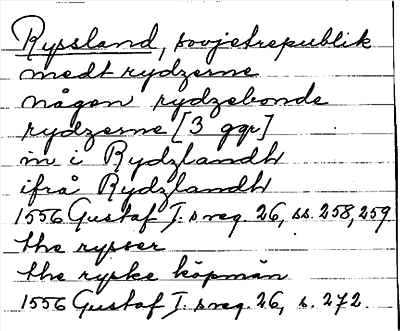 Ryssland, sovjetrepublik
medt rydzerne
någen rydzebonde
rydzerne [3 ggr]
in i Rydzlandh
ifrå Rydzlandh
1556 Gustaf I. s reg. 26, ss. 258, 259
the rysser
the ryske köpmän
1556 Gustaf I. s reg. 26, s. 272.